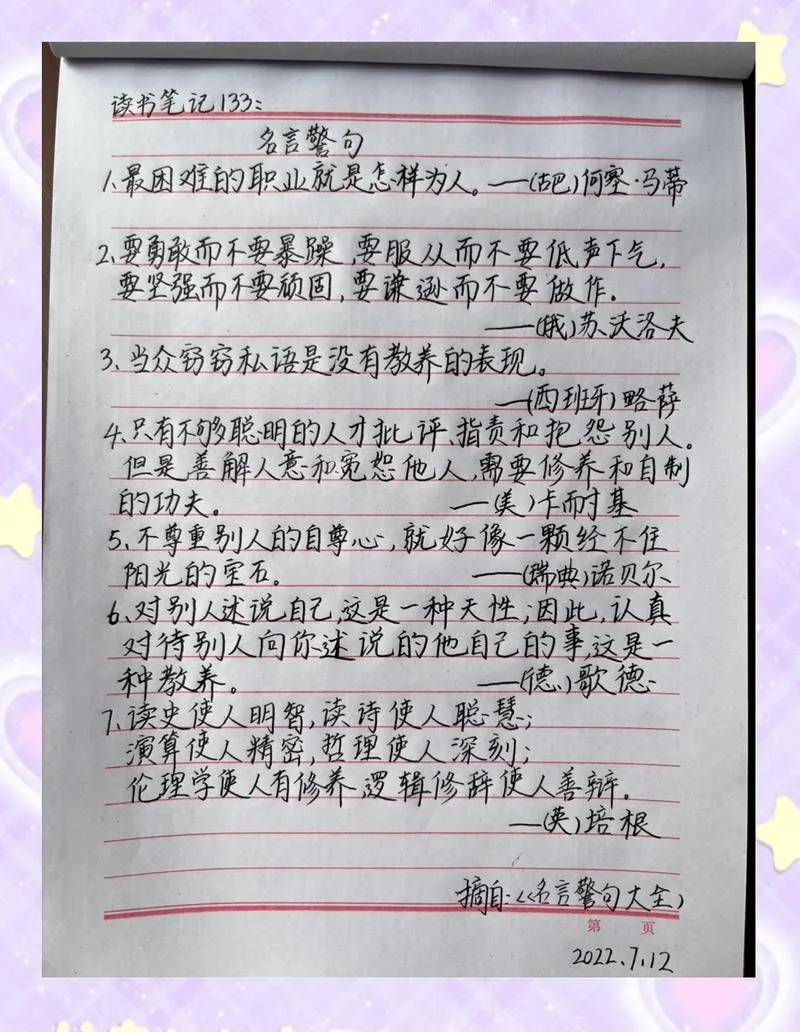 读书笔记133:
名言警句
1、最困难的职业就是怎样为人。——(古巴)何塞·马蒂
2、要勇敢而不要暴躁,要服从而不要低声下气,
要坚强而不要顽固,要谦逊而不要做作。
——(俄)苏沃洛夫
3、当众窃窃私语是没有教养的表现。
——(西班牙)略萨
4、只有不够聪明的人才批评、指责和抱怨别人。
但是善解人意和宽恕他人,需要修养和自制
的功夫。 ——(美)卡耐基
5、不尊重别人的自尊心,就好像一颗经不住
阳光的宝石。 ——(瑞典)诺贝尔
6、对别人述说自己,这是一种天性;因此,认真
对待别人向你述说的他自己的事,这是一
种教养。 ——(德)歌德
7、读史使人明智,读诗使人聪慧;
演算使人精密,哲理使人深刻;
伦理学使人有修养,逻辑修辞使人善辩。
——(英)培根
摘自:《名言警句大全》
第 页
2022.7.12